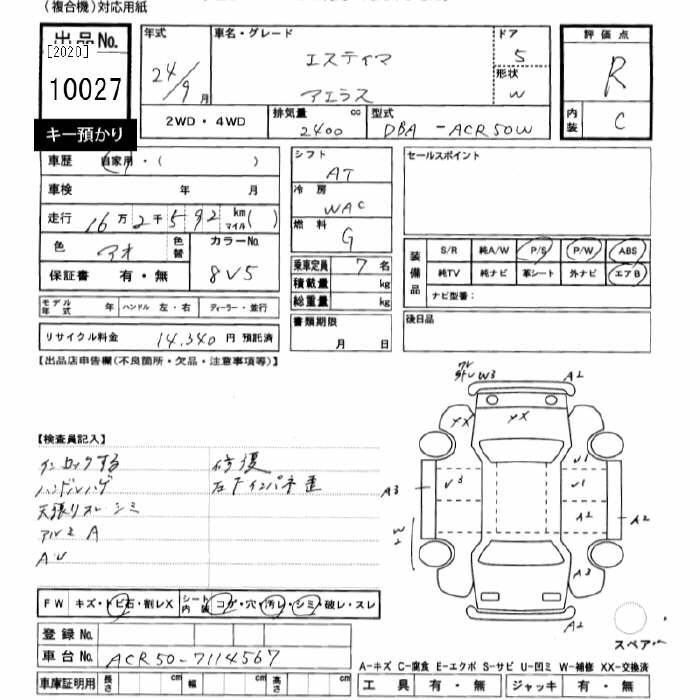 (複合機)対応用紙
出品No.
[2020]
10027
キー預かり
年式
24/9月
車名・グレード
エスティマ
アエラス
ドア
5
形状
W
評価点
R
内装
C
2WD・4WD
排気量
2400 cc
型式
DBA-ACR50W
車歴 自家用・( )
車検 年 月
走行 16万2千592 km マイル( )
色 アオ 色替 カラーNo. 8V5
保証書 有・無
モデル年式 年 ハンドル 左・右 ディーラー・並行
リサイクル料金 14,340円 預託済
シフト
AT
冷房
WAC
燃料
G
乗車定員 7名
積載量 kg
総重量 kg
書類期限
月 日
セールスポイント
装備品
S/R 純A/W P/S P/W ABS
純TV 純ナビ 革シート 外ナビ エアB
ナビ型番:
後日品
【出品店申告欄(不良箇所・欠品・注意事項等)】
【検査員記入】
インロックする
ハンドルハゲ
天張りスレ シミ
アルミ A
AU
修復
左Fインパネ歪
W3
A2
XX
XX
A3
V3
V1
V1
A2
A2
W2
A3
A2
スペアー
FW キズ・トビ石・割レX シート内装 コゲ・穴・汚レ・シミ・破レ・スレ
登録No.
車台No. ACR50-7114567
車庫証明用 長さ cm 幅 cm 高さ cm
A-キズ C-腐食 E-エクボ S-サビ U-凹ミ W-補修 XX-交換済
工具 有・無 ジャッキ 有・無